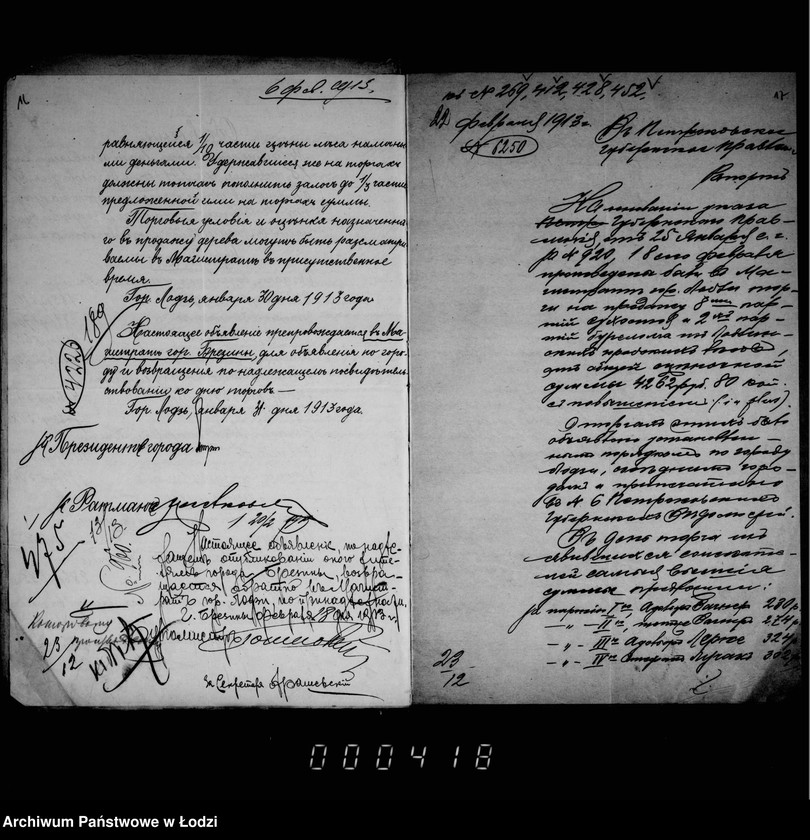 6 фев. 1913.
равняющейся 1/10 части цѣны лѣса наличны-
ми деньгами. Удержавшиеся же на торгахъ
должны тотчасъ пополнить залогъ до 1/3 части
предложенной ими на торгахъ суммы.
Торговыя условія и оцѣнка назначенна-
го въ продажу дерева могутъ быть разсматри-
ваемы въ Магистратѣ въ присутственное
время.
Гор. Лодзь, января 30 дня 1913 года
189
№ 4223
Настоящее объявленіе препровождается въ Ма-
гистратъ гор. Брезины для объявленія по горо-
ду и возвращенія по надлежащемъ
ствованіи ко дню торговъ —
Гор. Лодзь, января 31 дня 1913 года.
Президентъ города
Ратманъ
475
13/II 13
Настоящее объявленіе, по надле-
жащемъ опубликованіи оного жите-
лямъ города Брезины, возвра-
щается обратно въ Магист-
ратъ гор. Лодзи, по принадлежности.
г. Брезины февраля 18 дня 1913 г.
Бургомистръ
23/12
За Секретаря
по № 269, 412, 428, 452
17
22 февраля 1913 г.
№ 6250
Въ Петроковское
Губернское Правленіе
Рапортъ
На основаніи указа
Губернскаго Прав-
ленія, отъ 25 Января с. г.
за № 920, 18 сего февраля
произведены были въ Ма-
гистратѣ гор. Лодзи тор-
ги на продажу 8 пар-
тій сухостоя и 2 пар-
тій бурелома изъ Лодзин-
скихъ городскихъ лѣсовъ,
отъ общей оцѣночной
суммы 4262 руб. 80 коп.
съ повышеніемъ (in plus).
О торгахъ этихъ было
объявлено установлен-
нымъ порядкомъ по городу
Лодзи, сосѣднимъ горо-
дамъ и припечатано
въ № 6 Петроковскихъ
Губернскихъ Вѣдомостей.
Въ день торга изъ
явившихся соискате-
лей самыя высшія
суммы предложили:
за партію I-ю Вагнеръ 280 р.
" - II-ю, Вагнеръ 274 р.
" - III-ю 324 р.
" - IV-ю 302 р.
23/12
000418
Archiwum Państwowe w Łodzi